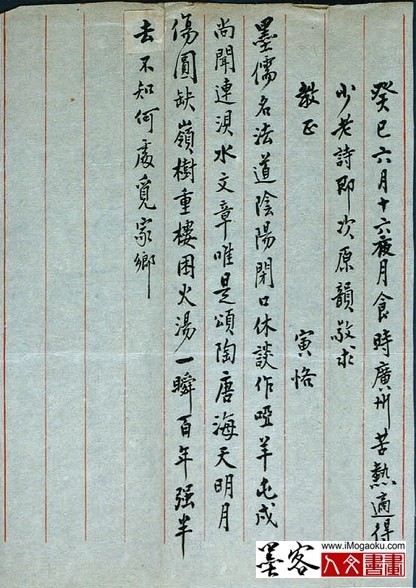 癸巳六月十六夜月食時廣州苦熱適得
少老詩即次原韻敬求
教正
寅恪
墨儒名法道陰陽閉口休談作啞羊屯戍
尚聞連浿水文章唯是頌陶唐海天明月
傷圓缺嶺樹重樓困火湯一瞬百年强半
去不知何處覓家鄉
www.iMogaoku.com
墨客
人文書畫